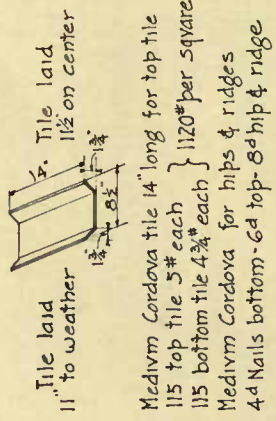 Tile laid
11" to weather
Tile laid
11½" on center
14"
1¾"
8½"
1¾"
Medivm Cordova tile 14" long for top tile
115 top tile 5# each
115 bottom tile 4¾# each } 1120# per sqvare
Medivm Cordova for hips & ridges
4d Nails bottom - 6d top - 8d hip & ridge